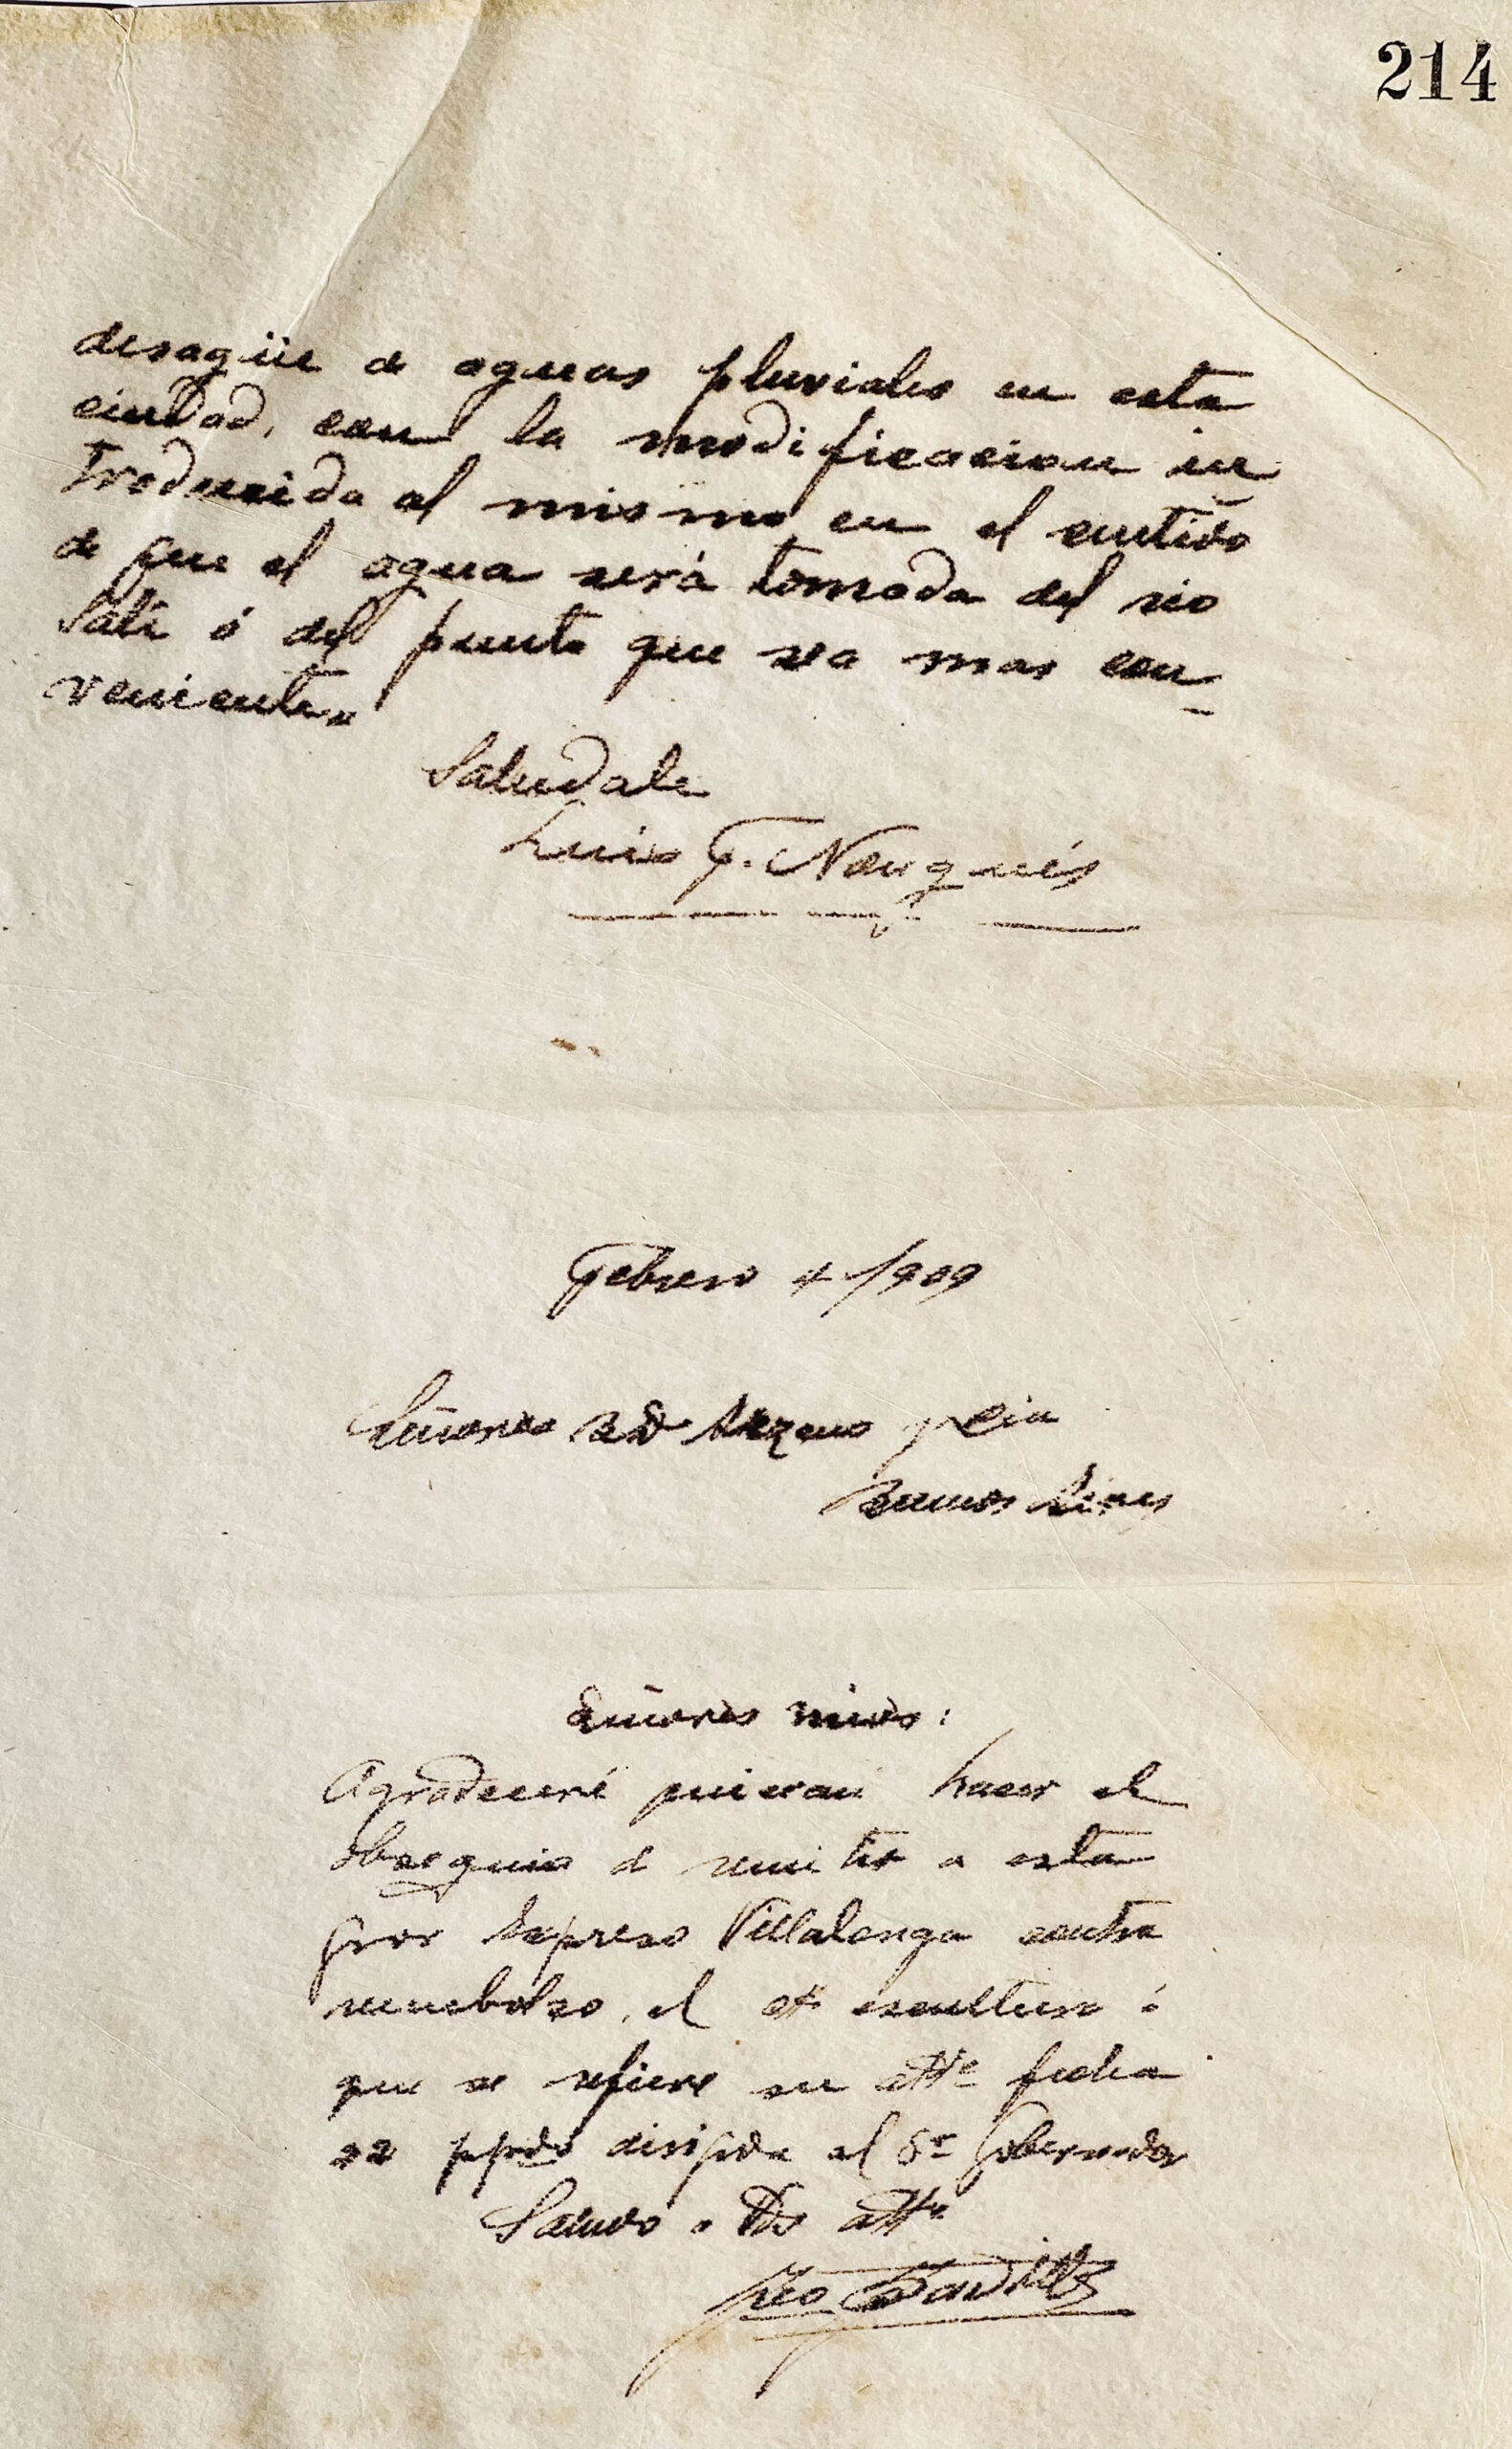 214
desagüe de aguas pluviales en esta
ciudad, con la modificacion in
troducida al mismo en el sentido
de que el agua será tomada del rio
Salí ó del punto que sea mas con-
veniente.
Saludale
Luis F. Nougués
Febrero 4/909
Señores y Cia
Buenos Aires
Señores mios:
Agradeceré quieran hacer el
obsequio de remitir a esta
por Expreso Villalonga contra
reembolso, el escritura á
que se refiere su atta fecha
22 ppdo dirigida al Sr Gobernador
Saludo a Uds atte